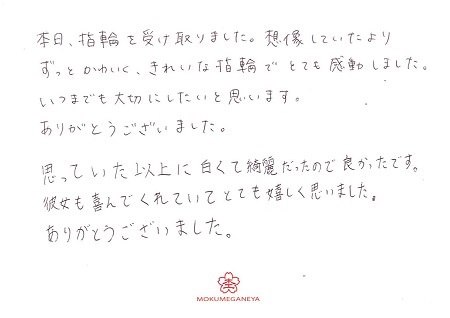 本日、指輪を受け取りました。想像していたより
ずっとかわいく、きれいな指輪でとても感動しました。
いつまでも大切にしたいと思います。
ありがとうございました。
思っていた以上に白くて綺麗だったので良かったです。
彼女も喜んでくれていてとても嬉しく思いました。
ありがとうございました。
MOKUMEGANEYA